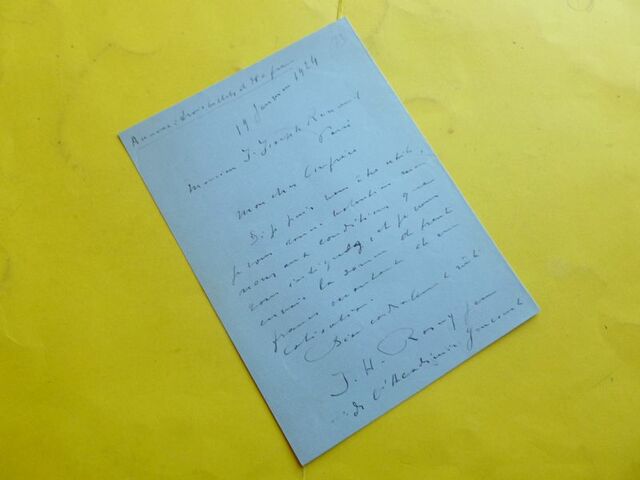 19 Janvier 1924
Monsieur J. Joseph Renaud
Paris
Mon cher Confrère
Si je puis vous être utile,
je vous donne volontiers mon
nom aux conditions que
vous indiquez et je vous
envoie la somme de trente
francs montant de ma
cotisation.
Bien cordialement vôtre
J. H. Rosny jeune
de l'Académie Goncourt